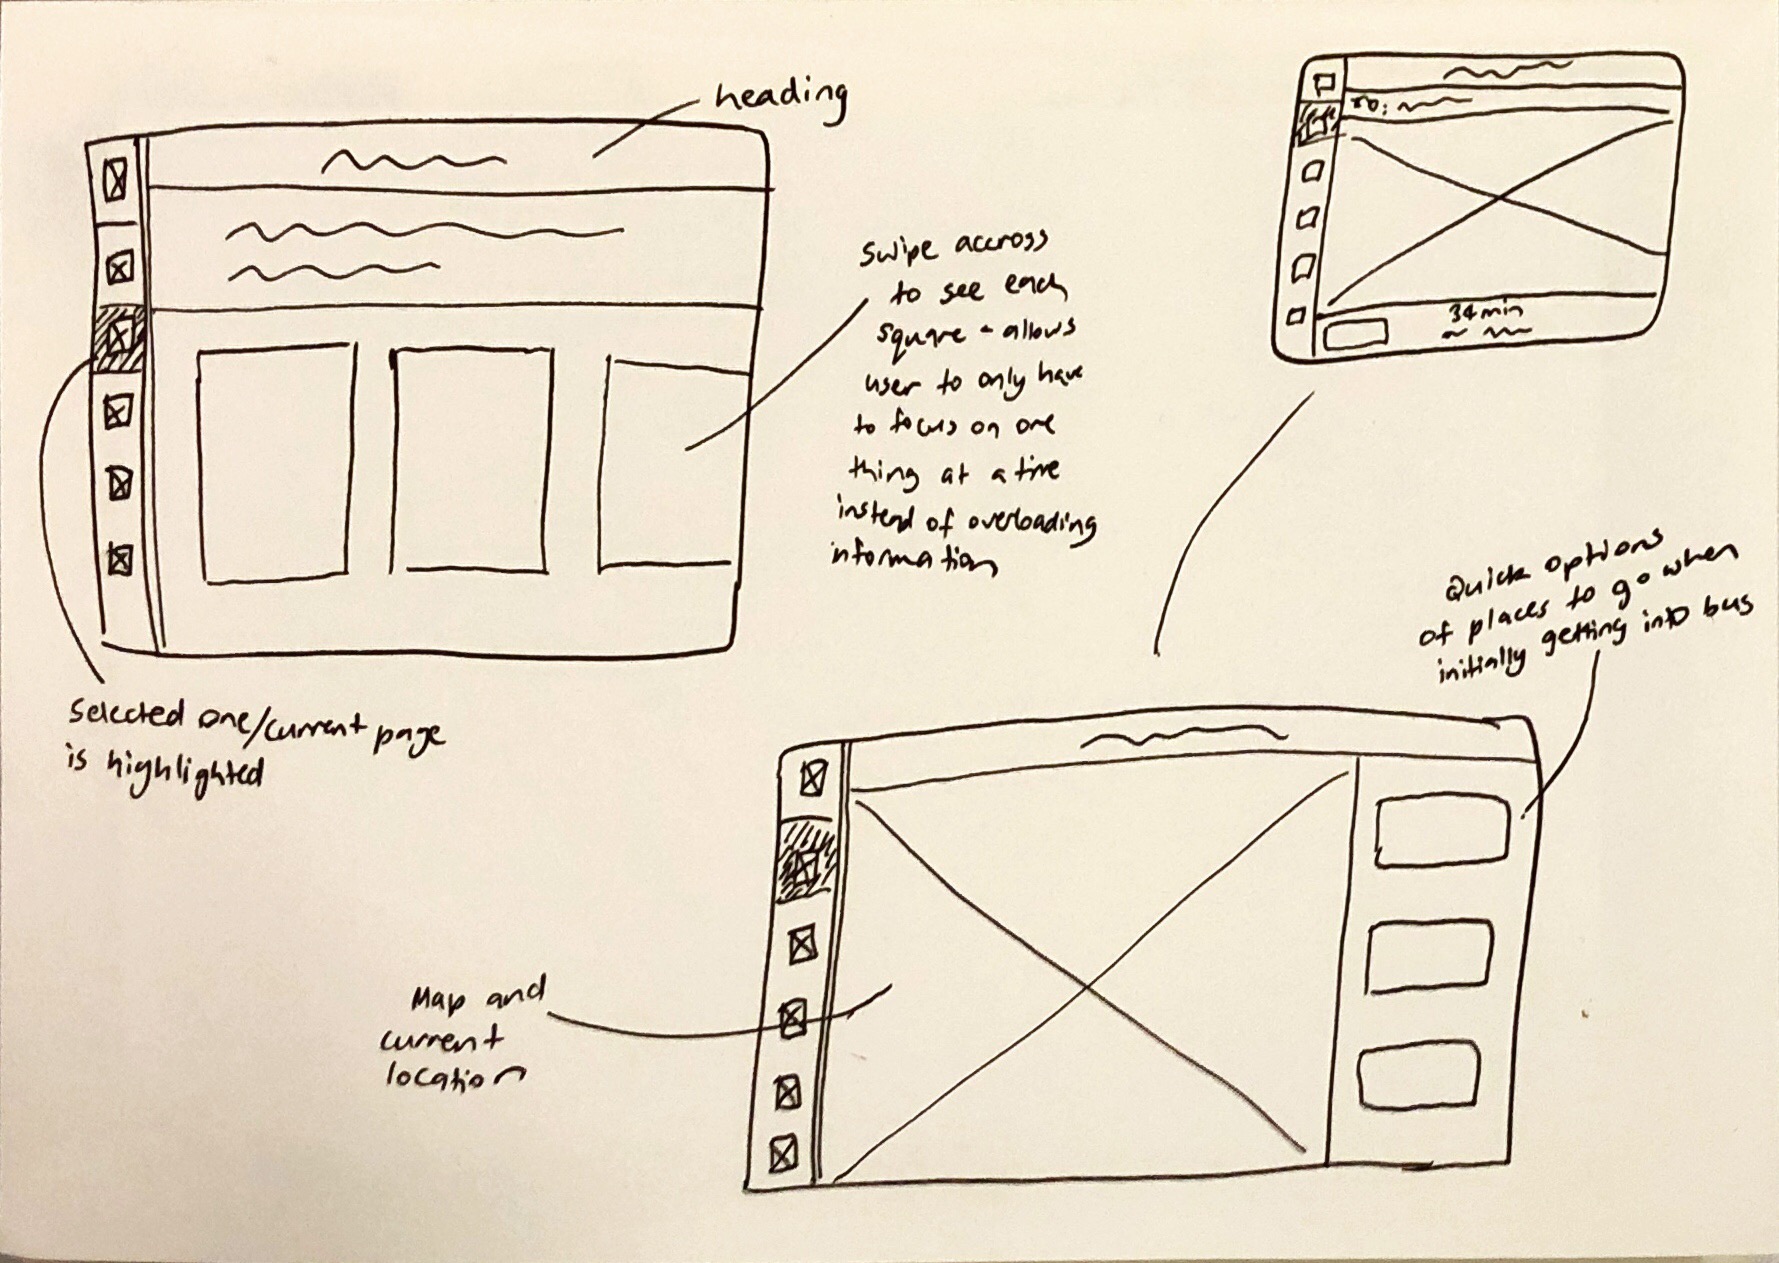 heading
Swipe accross
to see each
square - allows
user to only have
to focus on one
thing at a time
instead of overloading
information
Selected one/current page
is highlighted
TO:
34 min
Quick options
of places to go when
initially getting into bus
Map and
current
location